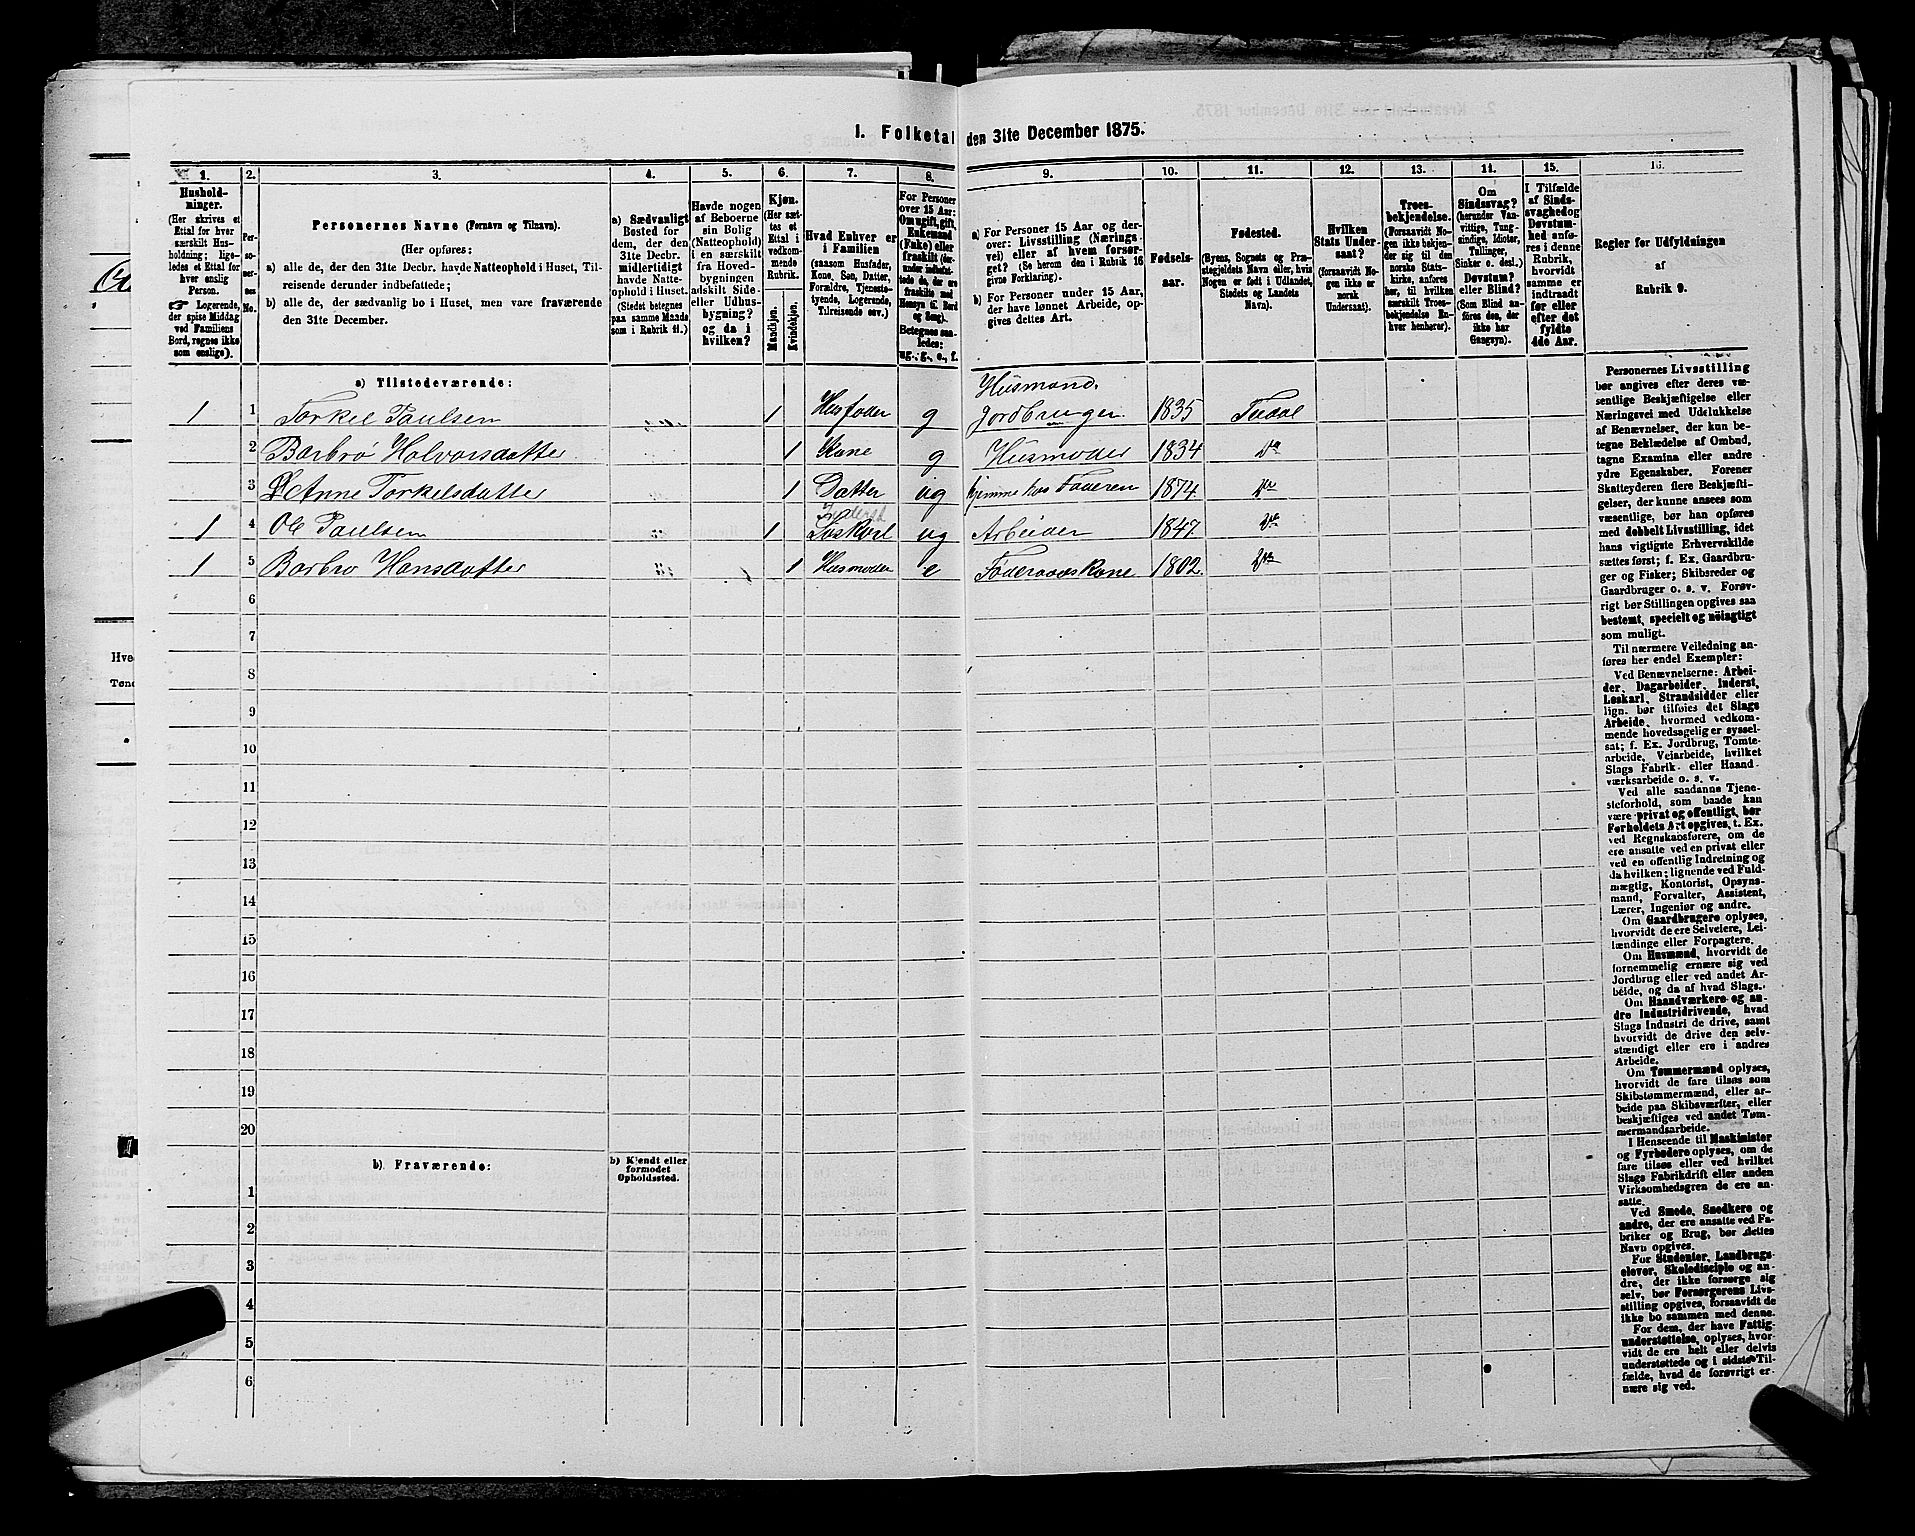 1. Folketal den 31te December 1875.
1.
2.
3.
4.
5.
6.
7.
8.
9.
10.
11.
12.
13.
14.
15.
16.
Hushold-
ninger.
(Her skrives et
Ettal for hver
særskilt Hus-
holdning; lige-
ledes et Ettal for
hver enslig
Person.
☞ Logerende,
der spise Middag
ved Familiens
Bord, regnes ikke
som enslige).
Per-
so-
ner-
nes
No.
Personernes Navne (Fornavn og Tilnavn).
(Her opføres:
a) alle de, der den 31te Decbr. havde Natteophold i Huset, Til-
reisende derunder indbefattede;
b) alle de, der sædvanlig bo i Huset, men vare fraværende
den 31te December.
a) Sædvanligt
Bosted for
dem, der den
31te Decbr.
midlertidigt
havde Natte-
ophold i Huset.
(Stedet betegnes
paa samme Maade
som i Rubrik 11.)
Havde nogen
af Beboerne
sin Bolig
(Natteophold)
i en særskilt
fra Hoved-
bygningen
adskilt Side-
eller Udhus-
bygning?
og da i
hvilken?
Kjøn.
(Her sæt-
tes et
Ettal i
vedkom-
mende
Rubrik.
Mandkjøn.
Kvindekjøn.
Hvad Enhver er
i Familien
(saasom Husfader,
Kone, Søn, Datter,
Forældre, Tjeneste-
tyende, Logerende,
Tilreisende osv.)
For Personer
over 15 Aar:
Om ugift, gift,
Enkemand
(Enke) eller
fraskilt
Betegnes saa-
ledes:
ug., g., e., f.
a) For Personer 15 Aar og der-
over: Livsstilling (Nærings-
vei) eller af hvem forsør-
get? (Se herom den i Rubrik 16
givne Forklaring).
b) For Personer under 15 Aar,
der have lønnet Arbeide, op-
gives dettes Art.
Fødsels-
aar.
Fødested.
(Byens, Sognets og Præ-
stegjeldets Navn eller, hvis
Nogen er født i Udlandet,
Stedets og Landets
Navn).
Hvilken
Stats Under-
saat?
(foraavidt No-
gen ikke er
norsk
Undersaat).
Troes-
bekjendelse.
(Forsaavidt No-
gen ikke bekjen-
der sig til den
norske Stats-
kirke, anføres
her, til hvilken
særskilt Troes-
bekjendelse En-
hver henhører).
Om
Sindssvag?
(herunder Van-
vittige, Tung-
sindige, Idioter,
Tullinger,
Sinker o. desl.)
Døvstum?
eller Blind?
(Som Blind an-
føres den, der
ikke har
Gangsyn).
I Tilfælde
af Sinds-
svaghed og
Døvstum-
hed anfø-
res i denne
Rubrik,
hvorvidt
samme er
indtraadt
før eller
efter det
fyldte
4de Aar.
Regler for Udfyldningen
af
Rubrik 9.
a) Tilstedeværende:
1 1 Torkel Paulsen 1 Husfader g Husmand. Jordbruger 1835 Tudal
2 Barbro Halvorsdatter 1 Kone g Husmoder 1834 Do
3 Anne Torkelsdatter 1 Datter ug hjemme hos Faderen 1874 Do
1 4 Ole Paulsen 1 Inderst Løskarl ug Arbeider 1847 Do
1 5 Barbro Hansdatter 1 Husmoder e Føderaadskone 1802 Do
6
7
8
9
10
11
12
13
14
15
16
17
18
19
20
b) Fraværende:
b) Kjendt eller
formodet
Opholdssted.
1
2
3
4
5
6
Personernes Livsstilling
bør angives efter deres væ-
sentlige Beskjæftigelse eller
Næringsvei med Udelukkelse
af Benævnelser, der kun be-
tegne Beklædelse af Ombud,
tagne Examina eller andre
ydre Egenskaber. Forener
Skatteyderen flere Beskjæfti-
gelser, der kunne ansees som
væsentlige, bør han opføres
med dobbelt Livsstilling, idet
hans vigtigste Erhvervskilde
sættes først; f. Ex. Gaardbru-
ger og Fisker; Skibsreder og
Gaardbruger o. s. v. Forøv-
rigt bør Stillingen opgives saa
bestemt, specielt og nöiagtigt
som muligt.
Til nærmere Veiledning an-
føres her endel Exempler:
Ved Benævnelserne: Arbei-
der, Dagarbeider, Inderst,
Løskarl, Strandsidder eller
lign. bør tilføies det Slags
Arbeide, hvormed vedkom-
mende hovedsagelig er syssel-
sat; f. Ex. Jordbrug, Tomte-
arbeide, Veiarbeide, hvilket
Slags Fabrik- eller Haand-
værksarbeide o. s. v.
Ved alle saadanne Tjene-
steforhold, som baade kan
være privat og offentligt, bør
Forholdets Art opgives, t. Ex.
ved Regnskabsførere, om de
ere ansatte ved en privat eller
ved en offentlig Indretning og
da hvilken; lignende ved Fuld-
mægtig, Kontorist, Opsyns-
mand, Forvalter, Assistent,
Lærer, Ingeniør og andre.
Om Gaardbrugere oplyses,
hvorvidt de ere Selveiere, Lei-
lændinge eller Forpagtere.
Om Husmænd, hvorvidt de
fornemmelig ernære sig ved
Jordbrug eller ved andet Ar-
beide, og da af hvad Slags.
Om Haandværkere og an-
dre Industridrivende, hvad
Slags Industri de drive, samt
hvorvidt de drive den selv-
stændigt eller ere i andres
Arbeide.
Om Tømmermænd oplyses,
hvorvidt de fare tilsøs som
Skibstømmermænd, eller ar-
beide paa Skibsværfter, eller
beskjæftiges ved andet Tøm-
mermandsarbeide.
I Henseende til Maskinister
og Fyrbødere oplyses, om de
fare tilsøs eller ved hvilket
Slags Fabrikdrift eller anden
Virksomhedsgren de ere an-
satte.
Ved Smede, Snedkere og
andre, der ere ansatte ved Fa-
briker og Brug, bør dettes
Navn opgives.
For Studenter, Landbrugs-
elever, Skoledisciple og an-
dre, der ikke forsørge sig
selv, bør Forsørgerens Livs-
stilling opgives, forsaavidt de
ikke bo sammen med denne.
For dem, der have Fattig-
understøttelse, oplyses, hvor-
vidt de ere helt eller delvis
understøttede og i sidste Til-
fælde, hvad de forøvrigt er-
nære sig ved.